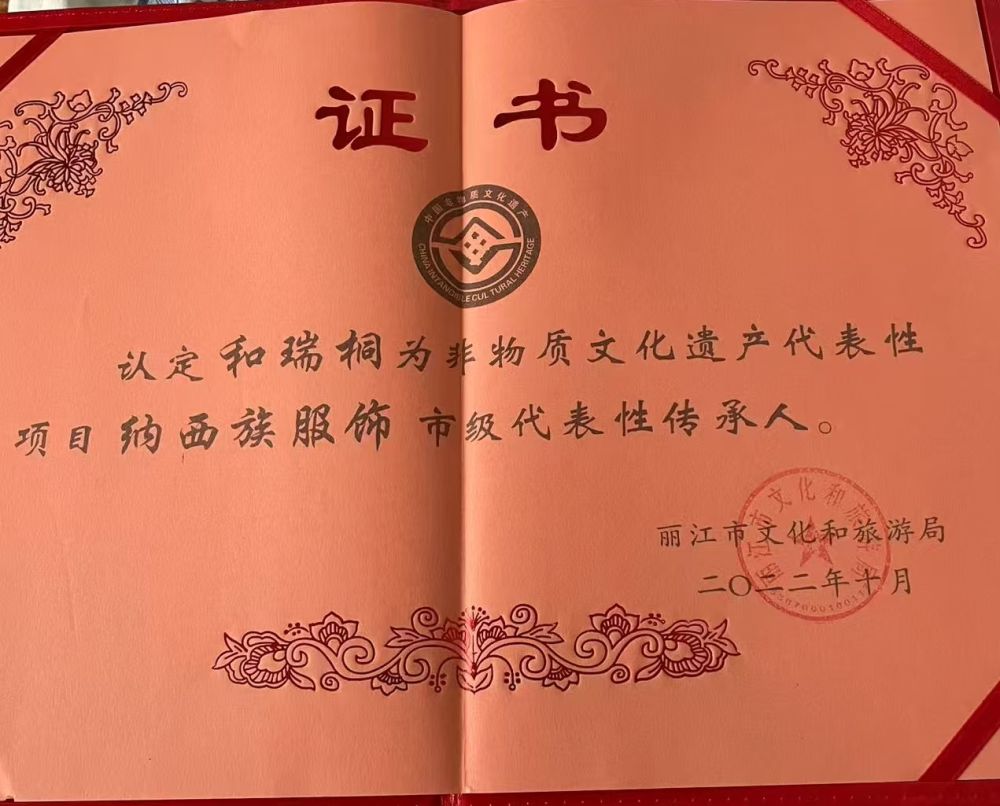 证书
中国非物质文化遗产
CHINA INTANGIBLE CULTURAL HERITAGE
认定和瑞桐为非物质文化遗产代表性
项目纳西族服饰市级代表性传承人。
丽江市文化和旅游局
二〇二二年十月
丽江市文化和旅游局